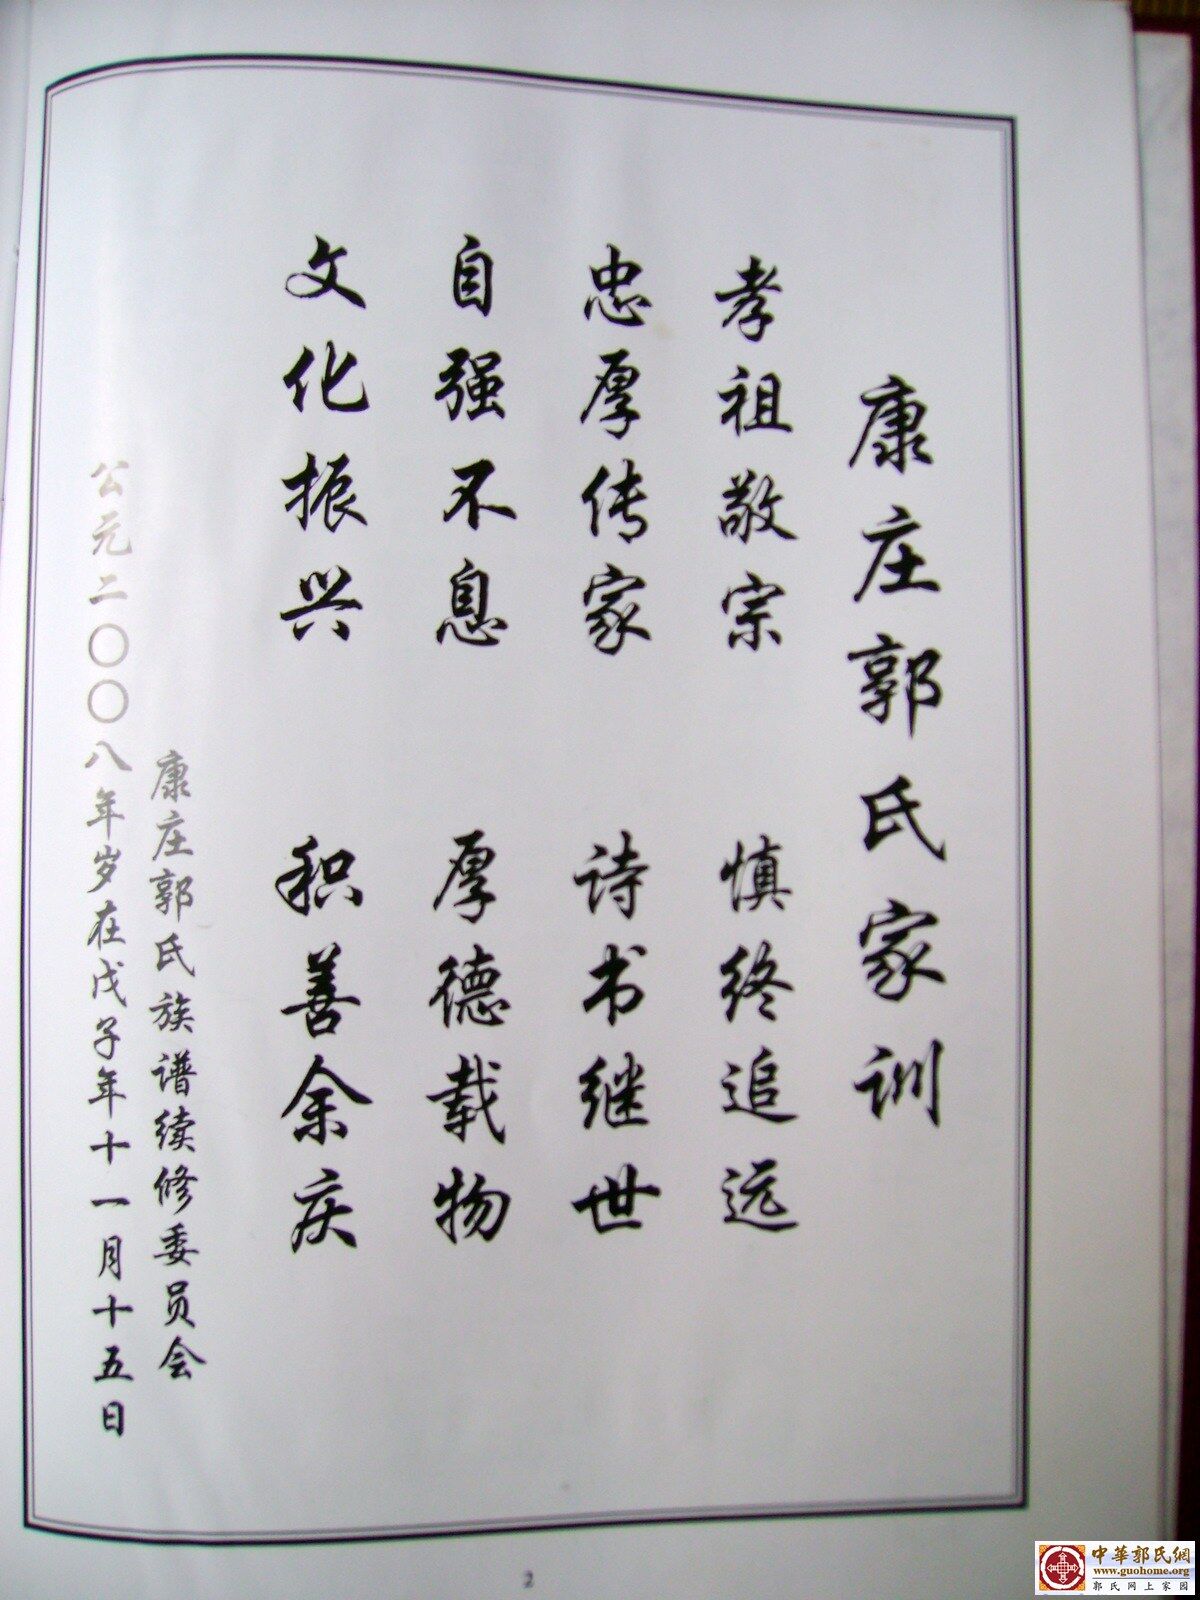 康庄郭氏家训
孝祖敬宗 慎终追远
忠厚传家 诗书继世
自强不息 厚德载物
文化振兴 积善余庆
康庄郭氏族谱续修委员会
公元二〇〇八年岁在戊子年十一月十五日
2
中華郭氏網
www.guohome.org
郭氏网上家园